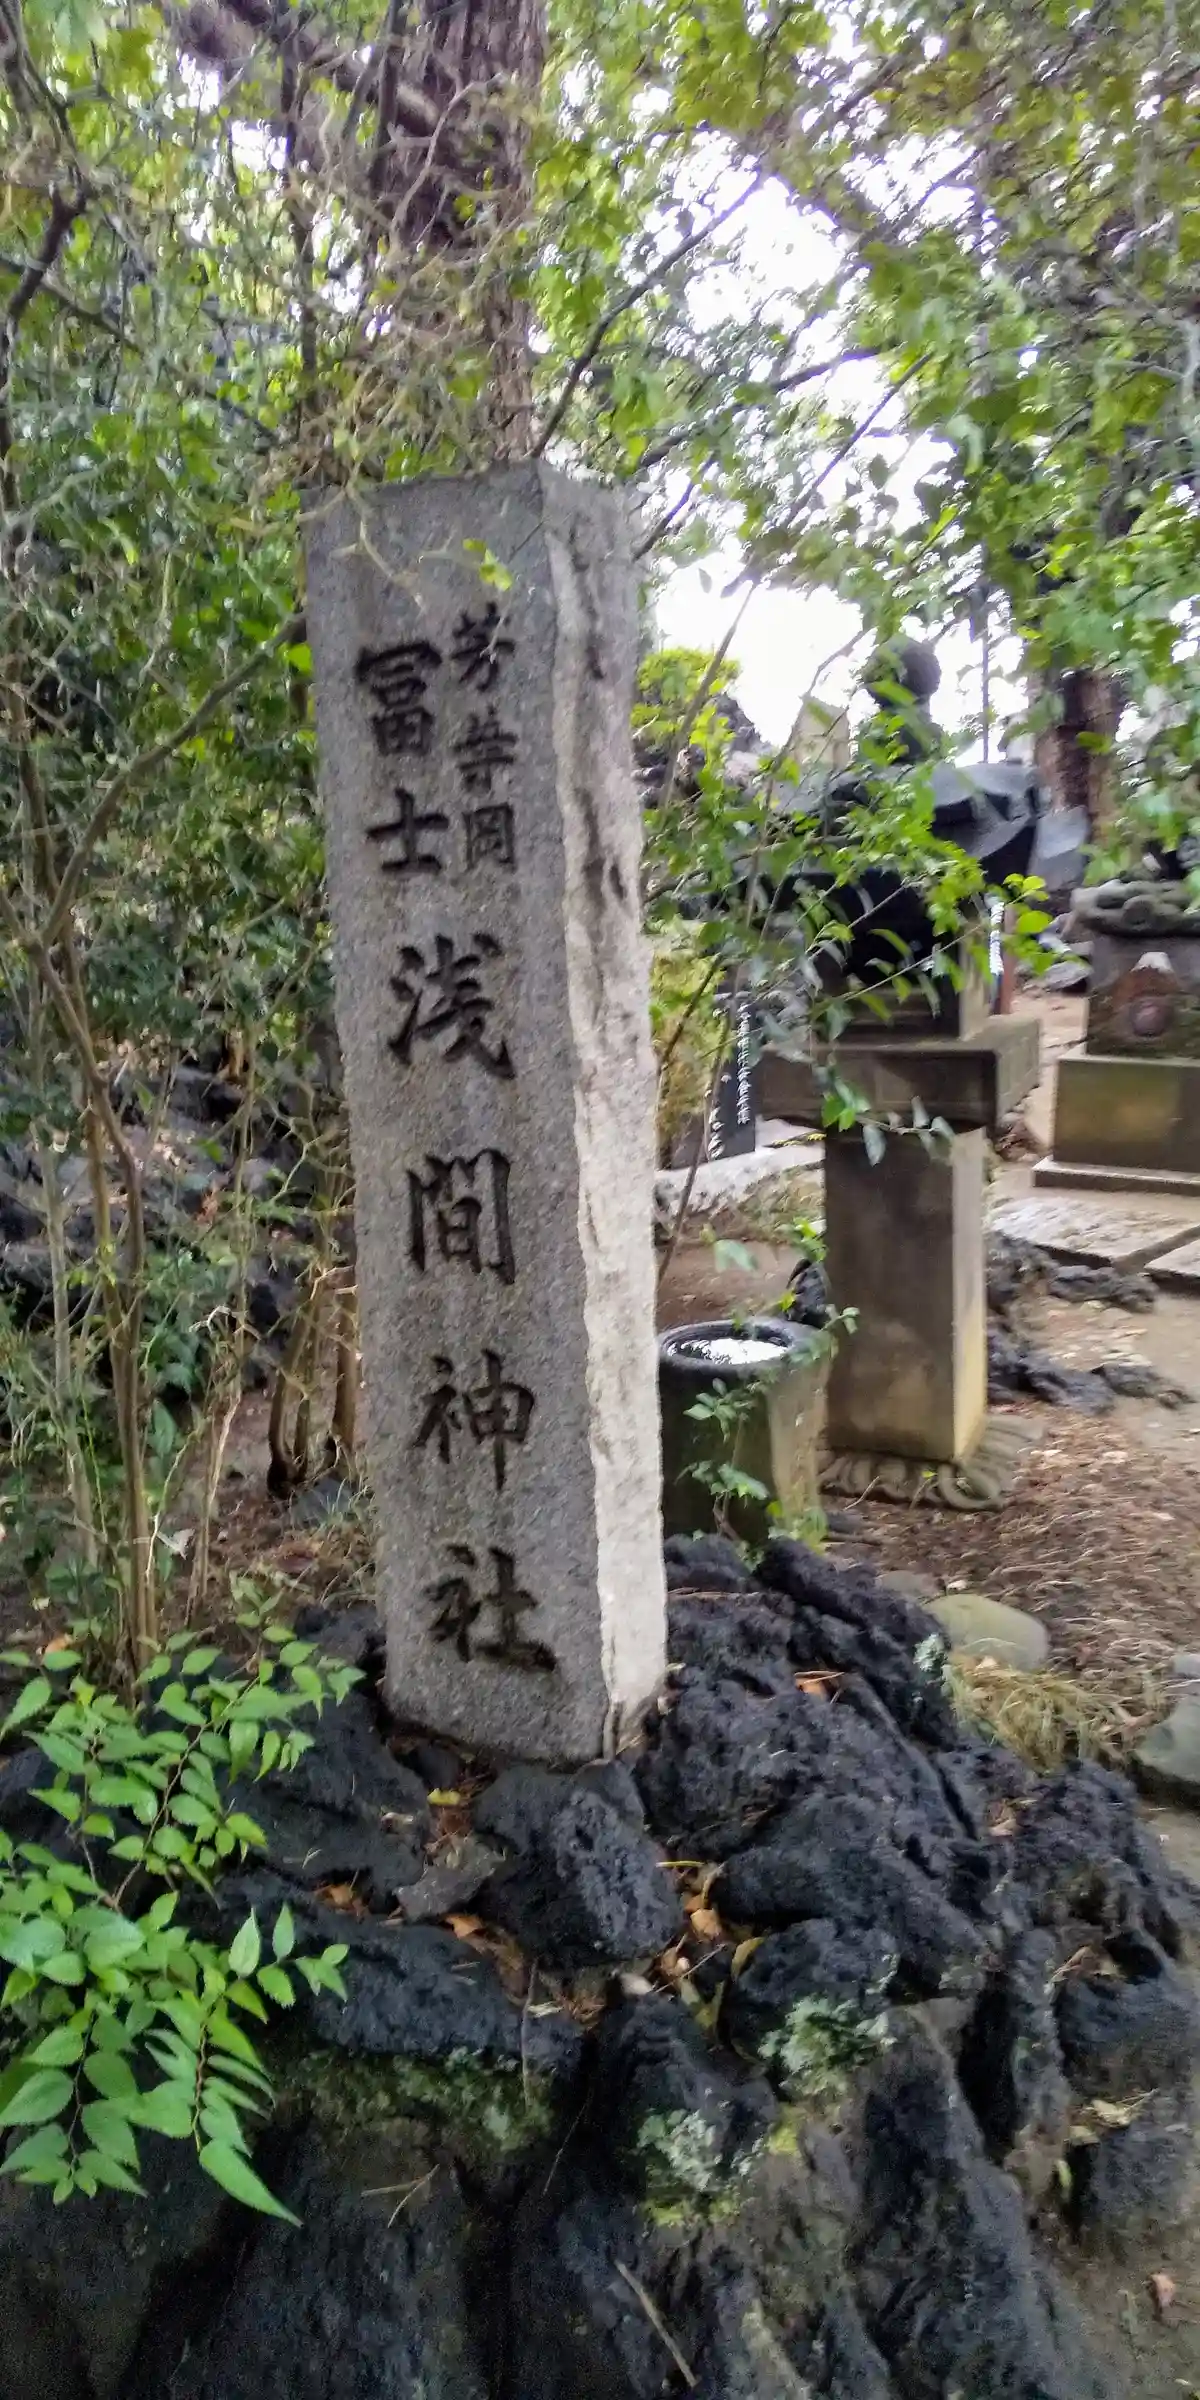 芳莘岡
冨士
浅間神社